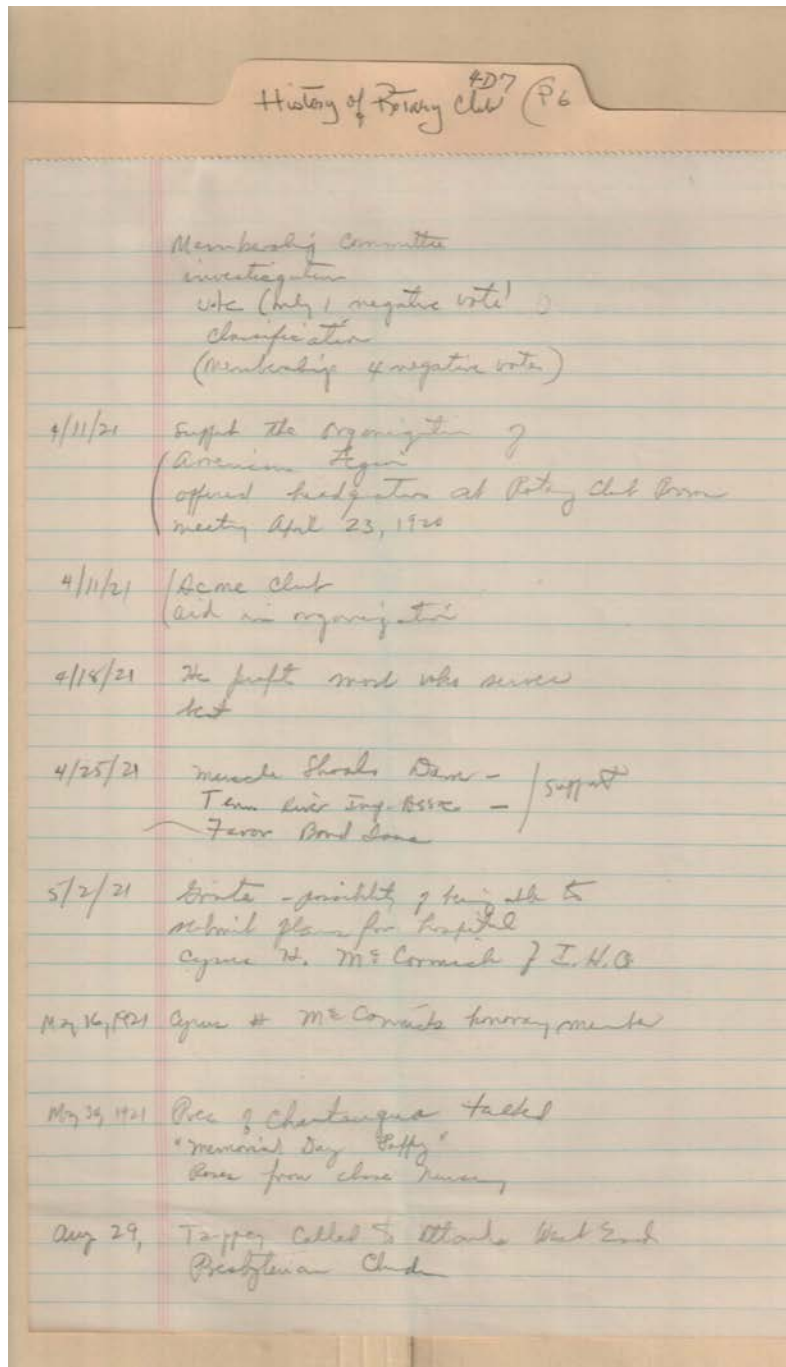 4-D7
History of Rotary Club (P6
Membership Committee
investigation
vote (only 1 negative vote)
classification
(Membership 4 negative votes)
4/11/21 Support the organization of
American Legion
offered headquarters at Rotary Club Room
meeting April 23, 1920
4/11/21 (Acme Club
(aid in organization
4/18/21 He profits most who serves
best
4/25/21 Muscle Shoals Dam - support
Tenn River Imp. Assoc -
Favor Bond Issue
5/2/21 - possibility of being able to
submit plans for hospital
Cyrus H. McCormick of I.H.C
May 16, 1921 Cyrus H McCormick honorary member
May 30, 1921 Pres of Chautauqua talked
"Memorial Day Poppy"
Roses from Chase Nursery
Aug 29, Tappey called to Atlanta West End
Presbyterian Church